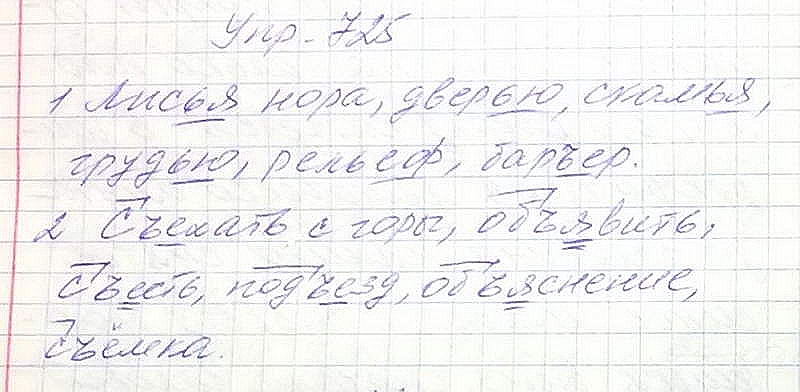 Упр-725
1 Лисья нора, дверью, скамья,
грудью, рельеф, барьер.
2 Съехать с горы, объявить,
съесть, подъезд, объяснение,
съёмка.